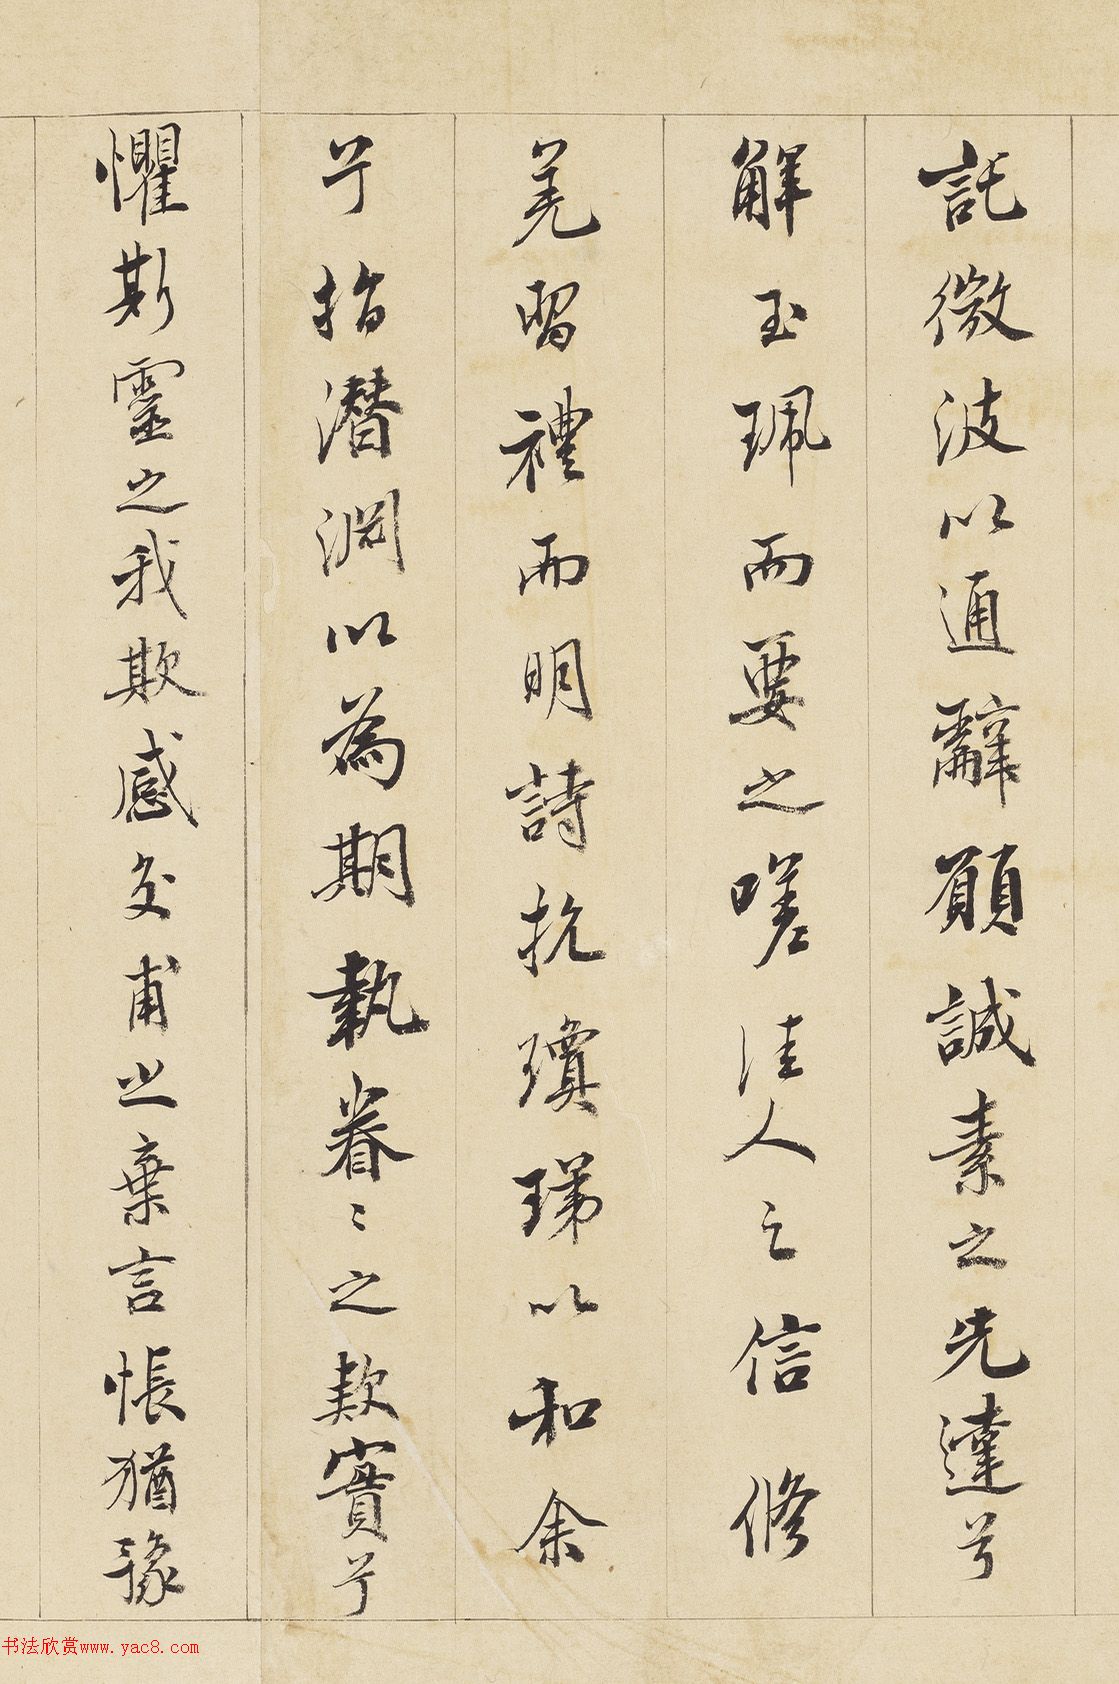 託微波以通辭願誠素之先達兮
解玉珮而要之嗟佳人之信修
羌習禮而明詩抗瓊珶以和余
兮指潛淵以為期執眷〻之款實兮
懼斯靈之我欺感交甫之棄言悵猶豫
书法欣赏www.yac8.com